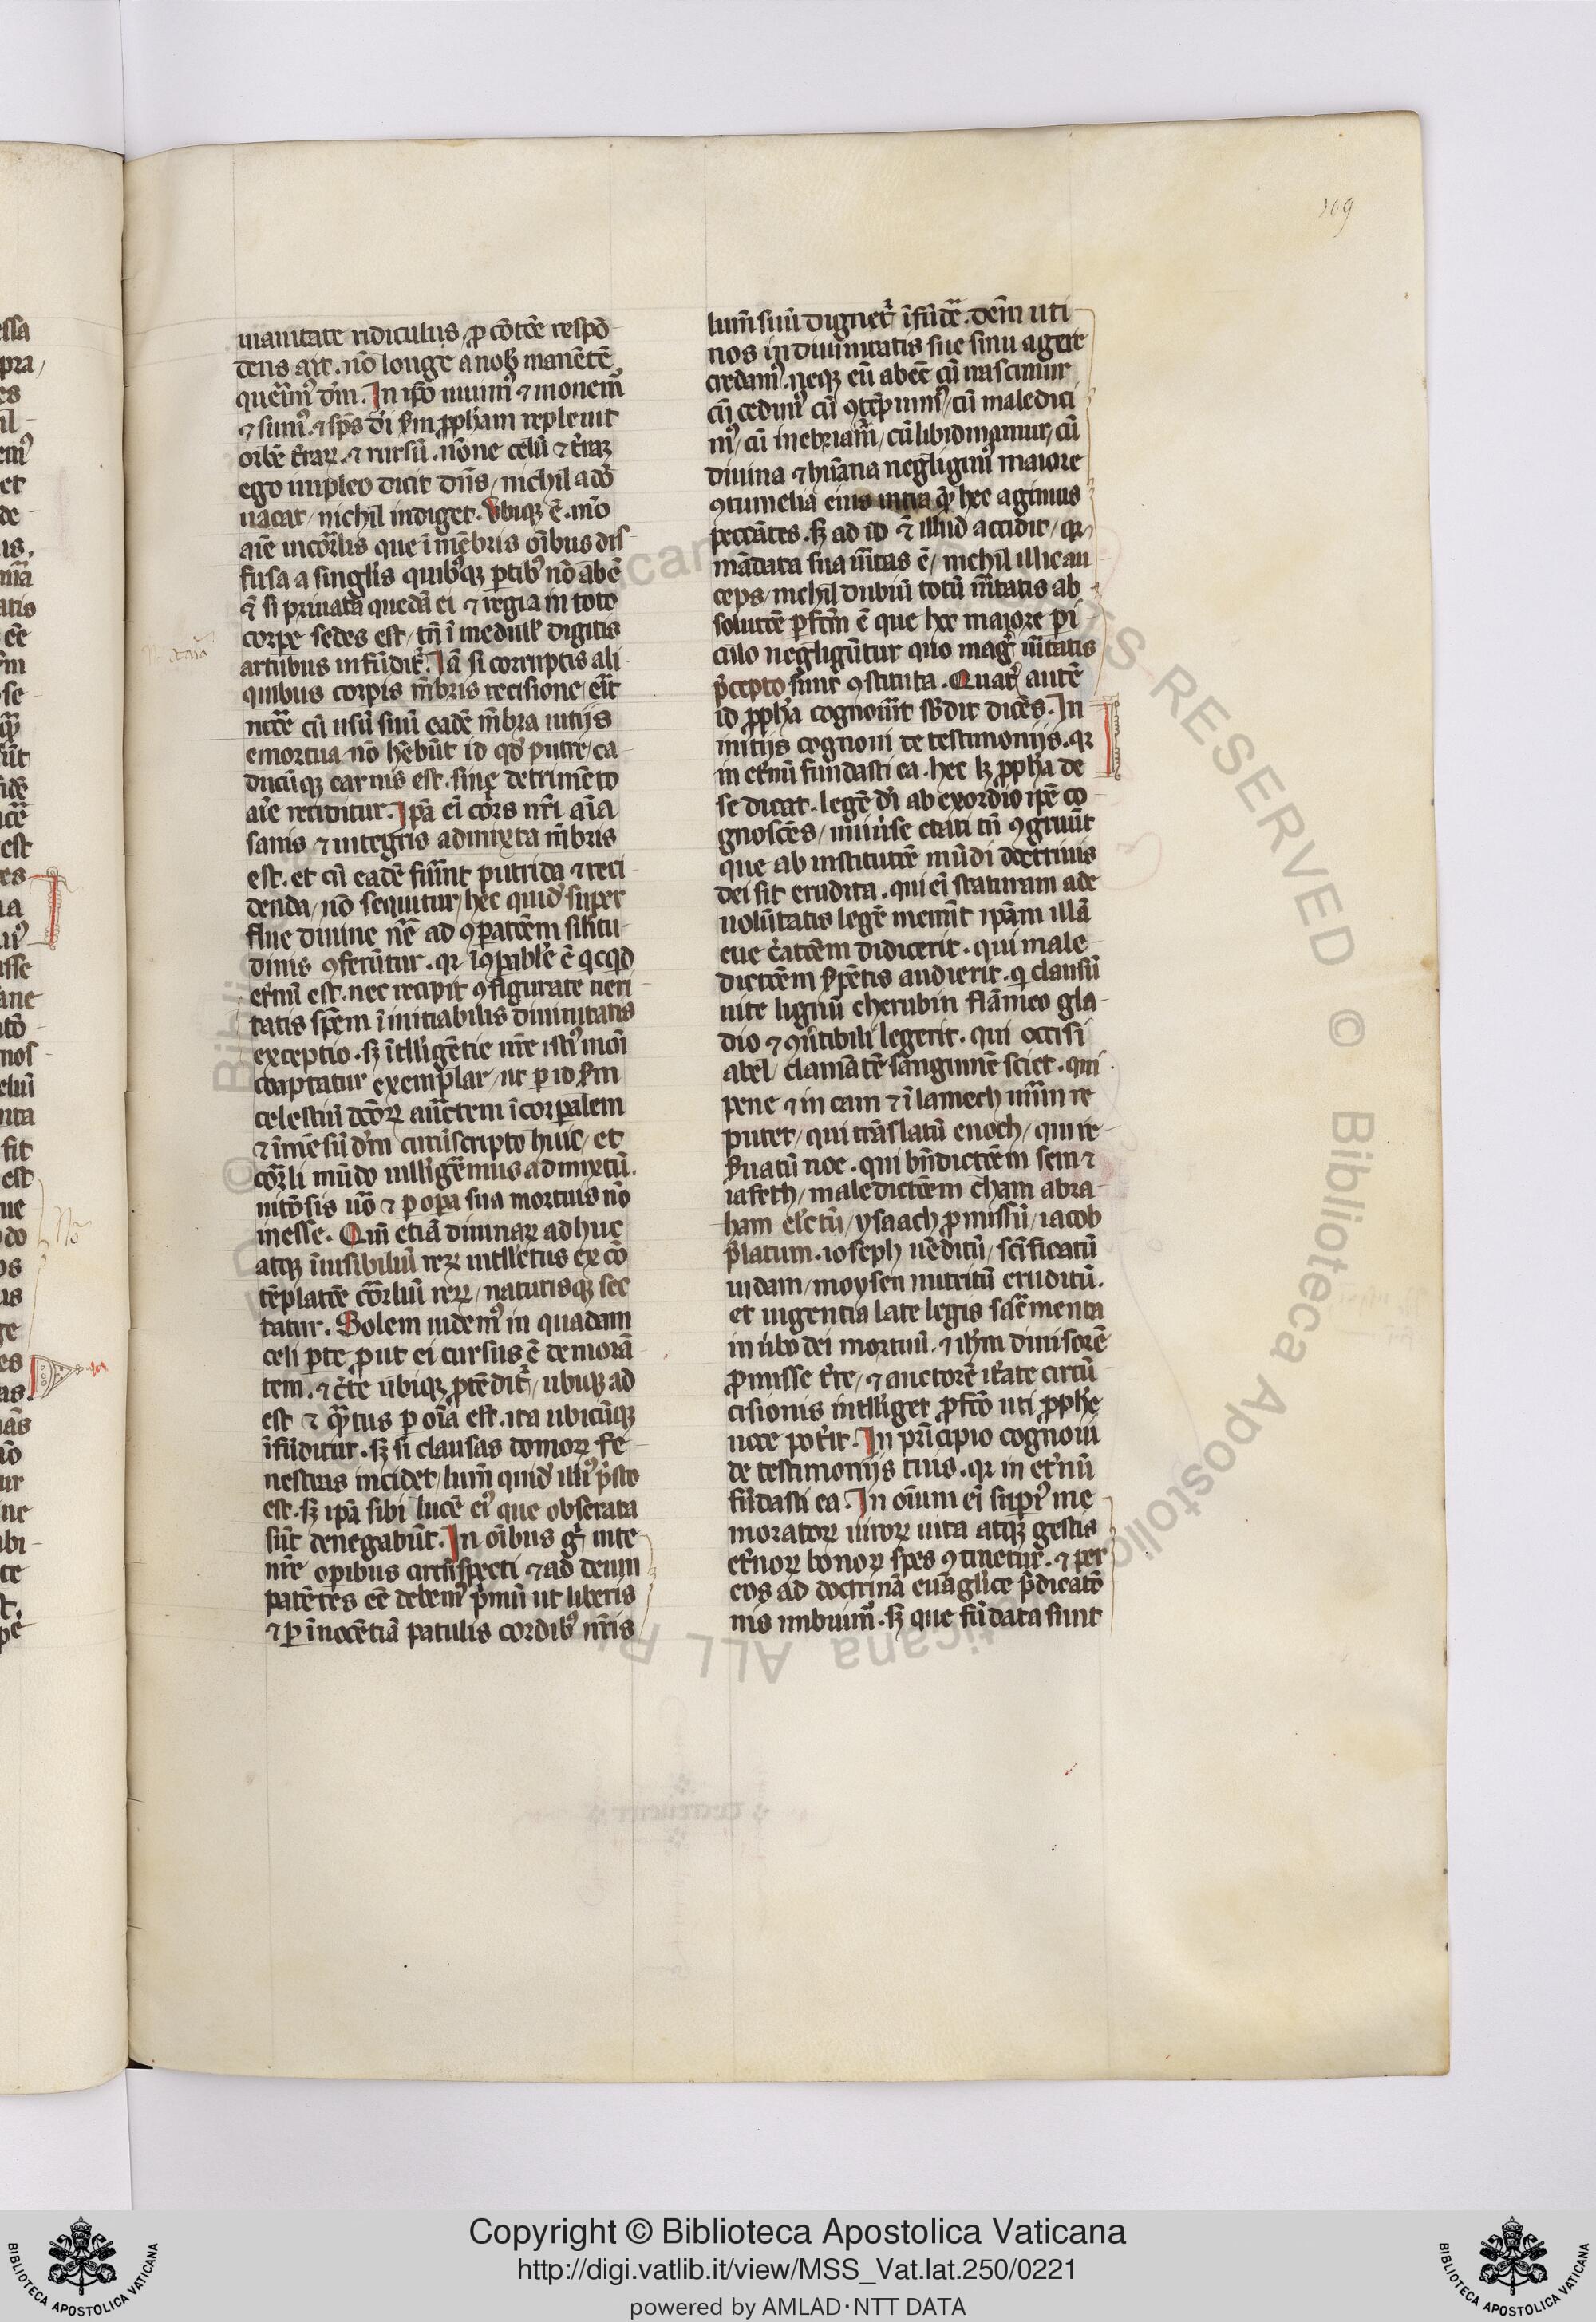 109
uanitate ridiculus, ꝓ cōtōe respō
dens ait. nō longe a nob manētē
querim⁹ dm̄. In ip̄o uiuim⁹ ⁊ mouem̄
⁊ sum⁹. ⁊ sp̄s di sm̄ ꝓph̄am repleuit
orbē t̄raꝝ. ⁊ rursū. nōne celū ⁊ t̄raꝫ
ego impleo dicit dn̄s, nichil a dō
uacat, nichil indiget. Vbiqꝫ ē. mō
aīe incorꝑlis que ī mēbris oībus dif
fusa a singl̄is quibꝰqꝫ ꝑtibꝰ nō abē
⁊ si priuata quedā ei ⁊ regia in toto
corꝑe sedes est, tn̄ ī medull̄ digitis
artubus infūdit̄. Iā si corruptis ali
quibus corꝑis m̄bris recisione, erit
nccē cū usū suū eadē m̄bra uitijs
emortua nō hēbūt id qd̄ putre, ca
ducūqꝫ carnis est. sine detrimēto
aīe reciditur. Ip̄a ei corꝑs nr̄i aīa
sanis ⁊ integris admixta m̄bris
est. et cū eadē fiūt putrida ⁊ reci
denda, nō sequitur, hec quid̄ super
flue diuine nr̄e ad ꝯꝑatōem silitu
dinis ꝯferūtur. qꝛ īꝯꝑabl̄e ē qcqd
et̄nū est. nec recipit ꝯfigurate ueri
tatis sp̄em ī initiabilis diuinitatis
exceptio. sꝫ ītlligētie nr̄e istiꝰ modi
coaptatur exemplar, ut ꝑ id sm̄
celestiū dcōꝝ auctem īcorꝑalem
⁊ īmēsū dm̄ circūscripto huic, et
corꝑli mūdo ītlligemus admixtū.
uitiosis uō ⁊ ꝑ oꝑa sua mortuis nō
inesse. Quī etiā diuinaꝝ adhuc
atqꝫ īuisibiliū reꝝ intll̄ctus ex cō
tēplatōe corꝑliū reꝝ, naturisqꝫ sec
tatur. Solem uidemꝰ in quadam
celi ꝑte ꝓut ei cursus ē demorā
tem. ⁊ c̄te ubiqꝫ ꝓtēdit̄, ubiqꝫ ad
est ⁊ qꝫtus ꝑ oīa est. ita ubicūqꝫ
īfūditur. sꝫ si clausas domoꝝ fe
nestras incidet, lum̄ quid̄ illiꝰ p̄sto
est. sꝫ ip̄a sibi lucē eiꝰ que obserata
sūt denegabūt. In oībus g̊ uite
nr̄e oꝑibus circūspecti ⁊ ad deum
patētes ee debemꝰ p̄mū ut liberis
⁊ ꝑ īnocētiā patulis cordibꝰ nr̄is
lum̄ suū dignet̄ īfūde. dem uti
nos in diuinitatis sue sinu agere
credamꝰ. neqꝫ eū abēe cū irascimur
cū cedimꝰ cū ꝯtēpnimꝰ, cū maledici
mꝰ, cū inebriam̄, cū libidinamur, cū
diuina ⁊ hūana negligimꝰ maiore
ꝯtumelia eius intra qꝫ hec agimus
peccātes. sꝫ ad id ⁊ illud accidit, qꝛ
mādata sua ūitas ē, nichil illic an
ceps, nichil dubiū totū ūitatis ab
solutōe ꝑfctm̄ ē que hec maiore pi
culo negligūtur quo mag̊ ūitatis
p̄cepto sunt ꝯstituta. Quat̄ autē
id ꝓph̄a cognouit sb̄dit dicēs. In
initijs cognoui de testimonijs. qꝛ
in et̄nū fundasti ea. hec lꝫ ꝓph̄a de
se dicat. legē di ab exordio ip̄e co
gnoscēs, uniuse etati tn̄ ꝯgruūt
que ab institutōe mūdi doctrinis
dei sit erudita. qui ei staturam ade
uolūtatis legē meruit ip̄am illā
eue c̄atōem didicerit. qui male
dictōem s̄pētis audierit. qi clausū
uite lignū cherubin flāmeo gla
dio ⁊ ꝯūtibili legerit. qui occisi
abel, clamātē sanguinē sciet. qui
pene ⁊ in cam ⁊ ī lamech uim̄ re
putet, qui trāslatū enoch, qui re
s̄uatū noe. qui bn̄dictōem sem ⁊
iafeth, maledictōem cham abra
ham el̄ctū, ysaach ꝓmissū, iacob
p̄latum. ioseph uēditū, scīficatū
iudam, moysen nutritū eruditū.
et uigentia late legis sac̄menta
in ūbo dei mortuū. ⁊ ih̄m diuisorē
ꝓmisse t̄re, ⁊ auctorē it̄ate circū
cisionis intll̄iget ꝓfcō uti ꝓph̄e
uoce pot̄it. In principio cognoui
de testimonijs tuis. qꝛ in et̄nū
fūdasti ea. In oīum ei supiꝰ me
moratoꝝ uiroꝝ uita atqꝫ gestis
et̄noꝝ bonoꝝ spes ꝯtinetur. ⁊ per
eos ad doctrinā euāglice p̄dicatō
nis imbuimꝰ. sꝫ que fūdata sunt
Copyright © Biblioteca Apostolica Vaticana
http://digi.vatlib.it/view/MSS_Vat.lat.250/0221
powered by AMLAD·NTT DATA
BIBLIOTECA APOSTOLICA VATICANA
BIBLIOTECA APOSTOLICA VATICANA